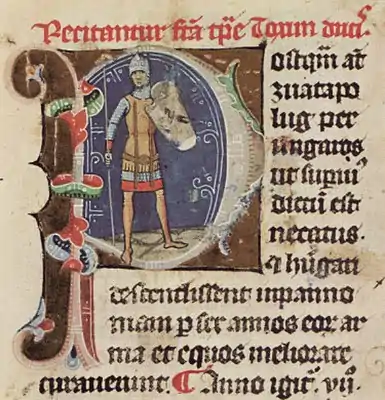 Recitantur fca tpe Toxun duct.
ostqm at
zuatapo
lug per
ungaros
ut supiu
dictu est
necatus.
et hugari
descendissent inpanno
niam p sex annos eor ar
ma et equos meliorare
curauerunt. Anno igit. vij.